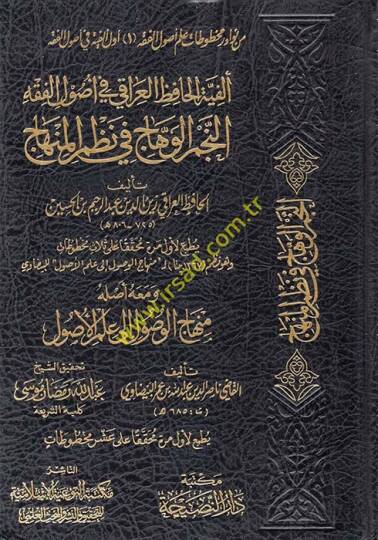 من نوادر مخطوطات علم أصول الفقه (١) أول ألفية في أصول الفقه
ألفية الحافظ العراقي في أصول الفقه
النجم الوهاج في نظم المنهاج
تأليف
الحافظ العراقي زين الدين عبد الرحيم بن الحسين
(٧٢٥-٨٠٦ هـ)
يطبع لأول مرة محققا على ثلاث مخطوطات
وهو نظم (١٣٦٧ بيتا) لـ "منهاج الوصول إلى علم الأصول" للبيضاوي
ومعه أصله
منهاج الوصول إلى علم الأصول
تأليف
القاضي ناصر الدين عبد الله بن عمر البيضاوي
(ت: ٦٨٥ هـ)
تحقيق الشيخ
عبد الله رمضان موسى
كلية الشريعة
يطبع لأول مرة محققا على عشر مخطوطات
مكتبة
دار النصيحة
الناشر
مكتبة التوعية الإسلامية
للتحقيق والنشر والبحث العلمي
النجم الوهاج في نظم المنهاج
www.irsad.com.tr